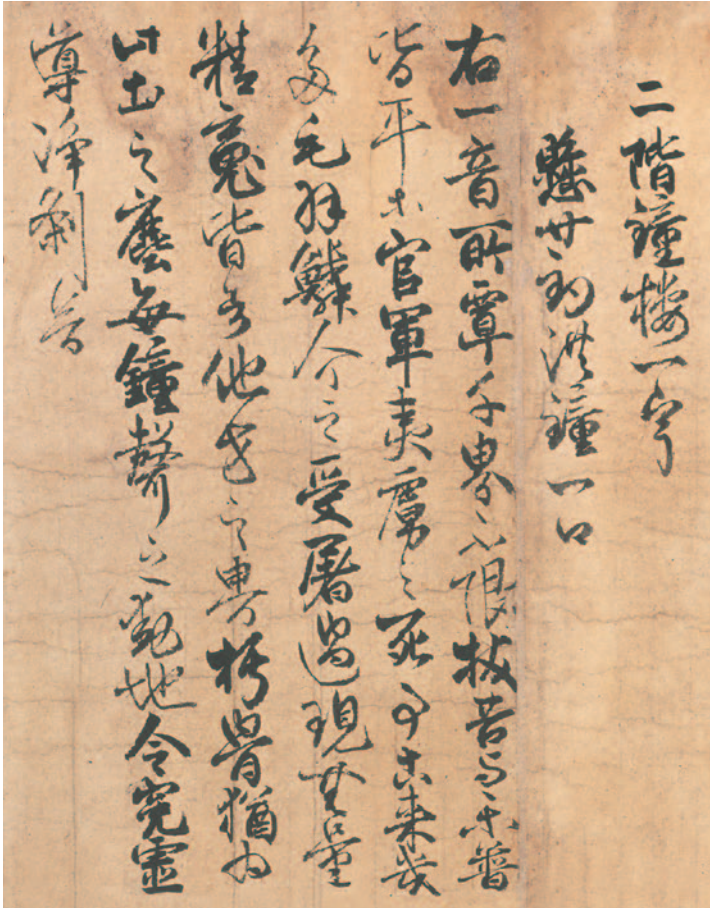 二階鐘樓一宇
懸廿鈞洪鐘一口
右一音所覃千界不限抜苦与樂普
皆平等官軍夷虜之死事古来幾
多毛羽鱗介之受屠過現無量
精魂皆去他方之界朽骨猶為
此土之塵毎鐘聲之動地令冤霊
導浄刹矣